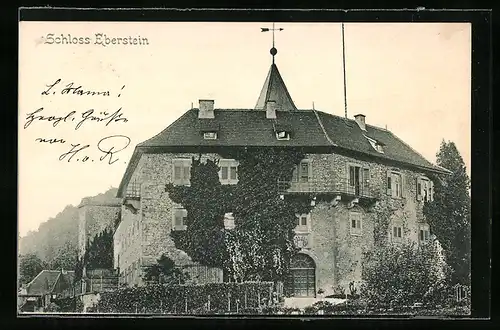 Schloss Eberstein
L. Mama!
Herzl. Grüße
von
H. u. R